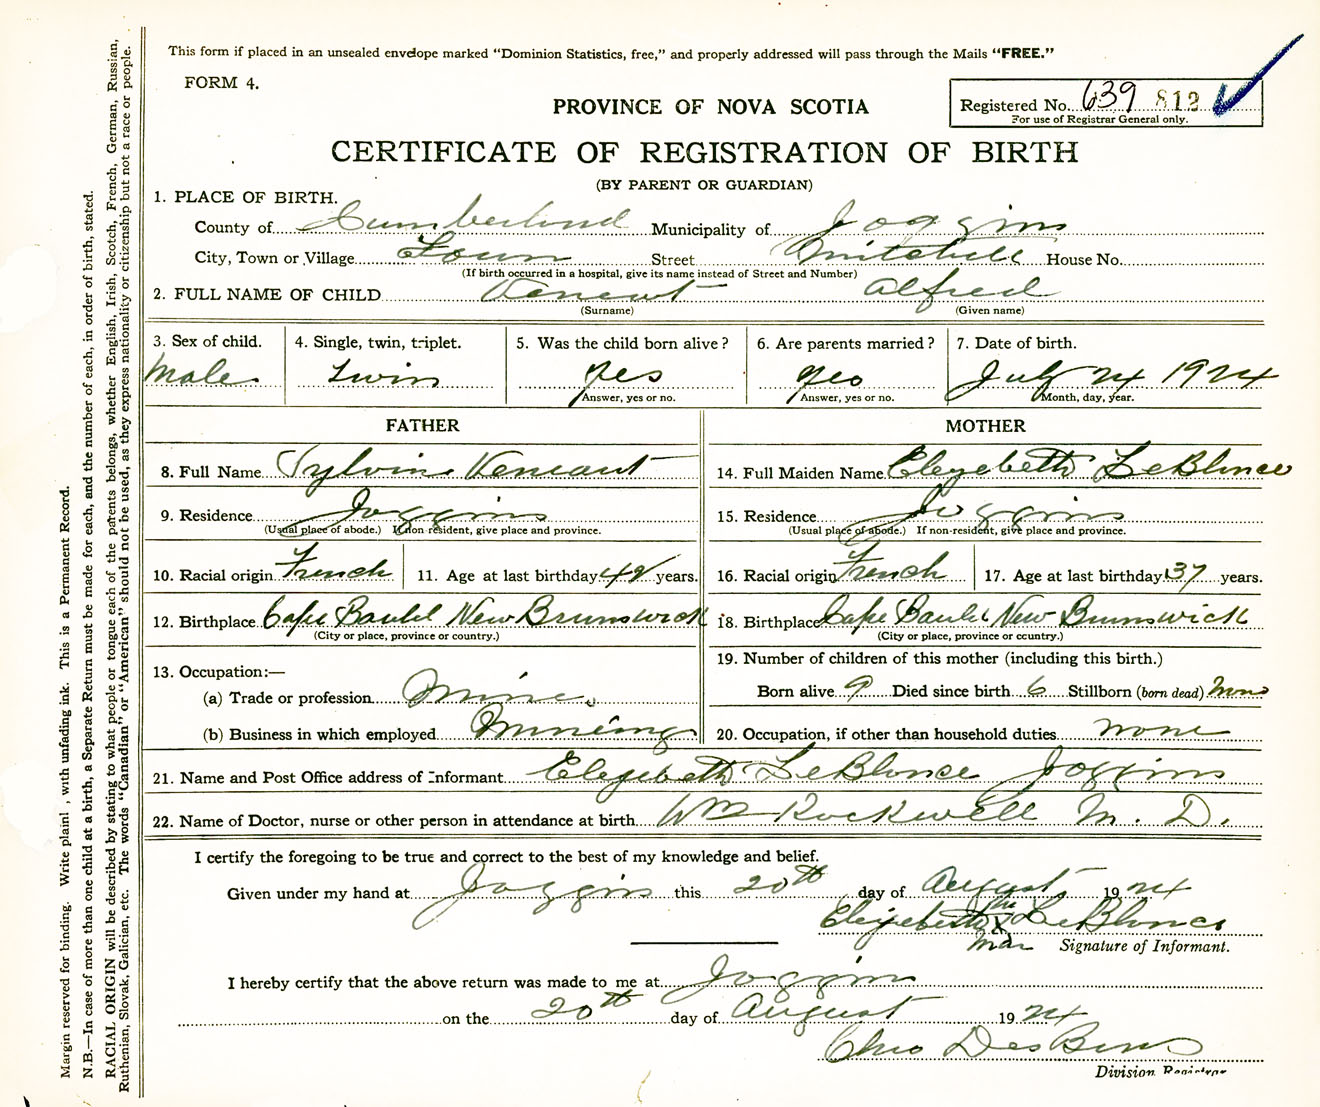 This form if placed in an unsealed envelope marked "Dominion Statistics, free," and properly addressed will pass through the Mails "FREE."
FORM 4.
PROVINCE OF NOVA SCOTIA
Registered No. 639 812
For use of Registrar General only.
CERTIFICATE OF REGISTRATION OF BIRTH
(BY PARENT OR GUARDIAN)
1. PLACE OF BIRTH.
County of Cumberlind Municipality of Joggins
City, Town or Village Town Street Mitchell House No.
(If birth occurred in a hospital, give its name instead of Street and Number)
2. FULL NAME OF CHILD Veneaut Alfred
(Surname) (Given name)
3. Sex of child. 4. Single, twin, triplet. 5. Was the child born alive? 6. Are parents married? 7. Date of birth.
Male Twin Yes Yes July 24 1924
Answer, yes or no. Answer, yes or no. Month, day, year.
FATHER
8. Full Name Sylvine Veneaut
9. Residence Joggins
(Usual place of abode.) If non-resident, give place and province.
10. Racial origin French 11. Age at last birthday years.
12. Birthplace Cape Bauld New Brunswick
(City or place, province or country.)
13. Occupation:—
(a) Trade or profession Mine
(b) Business in which employed Mineing
MOTHER
14. Full Maiden Name Elezebeth LeBlonce
15. Residence Joggins
(Usual place of abode.) If non-resident, give place and province.
16. Racial origin French 17. Age at last birthday 37 years.
18. Birthplace Cape Bauld New Brunswick
(City or place, province or country.)
19. Number of children of this mother (including this birth.)
Born alive 9 Died since birth 6 Stillborn (born dead) None
20. Occupation, if other than household duties None
21. Name and Post Office address of Informant Elezebeth LeBlonce Joggins
22. Name of Doctor, nurse or other person in attendance at birth Wm Rockwell M. D.
I certify the foregoing to be true and correct to the best of my knowledge and belief.
Given under my hand at Joggins this 20th day of August 1924
Elezebeth her X LeBlonce
Mar Signature of Informant.
I hereby certify that the above return was made to me at Joggins
on the 20th day of August 1924
Chas DesBins
Division Registrar
Margin reserved for binding. Write plainl , with unfading ink. This is a Permanent Record.
N.B.—In case of more than one child at a birth, a Separate Return must be made for each, and the number of each, in order of birth, stated.
RACIAL ORIGIN will be described by stating to what people or tongue each of the parents belongs, whether English, Irish, Scotch, French, German, Russian,
Ruthenian, Slovak, Galician, etc. The words "Canadian" or "American" should not be used, as they express nationality or citizenship but not a race or people.